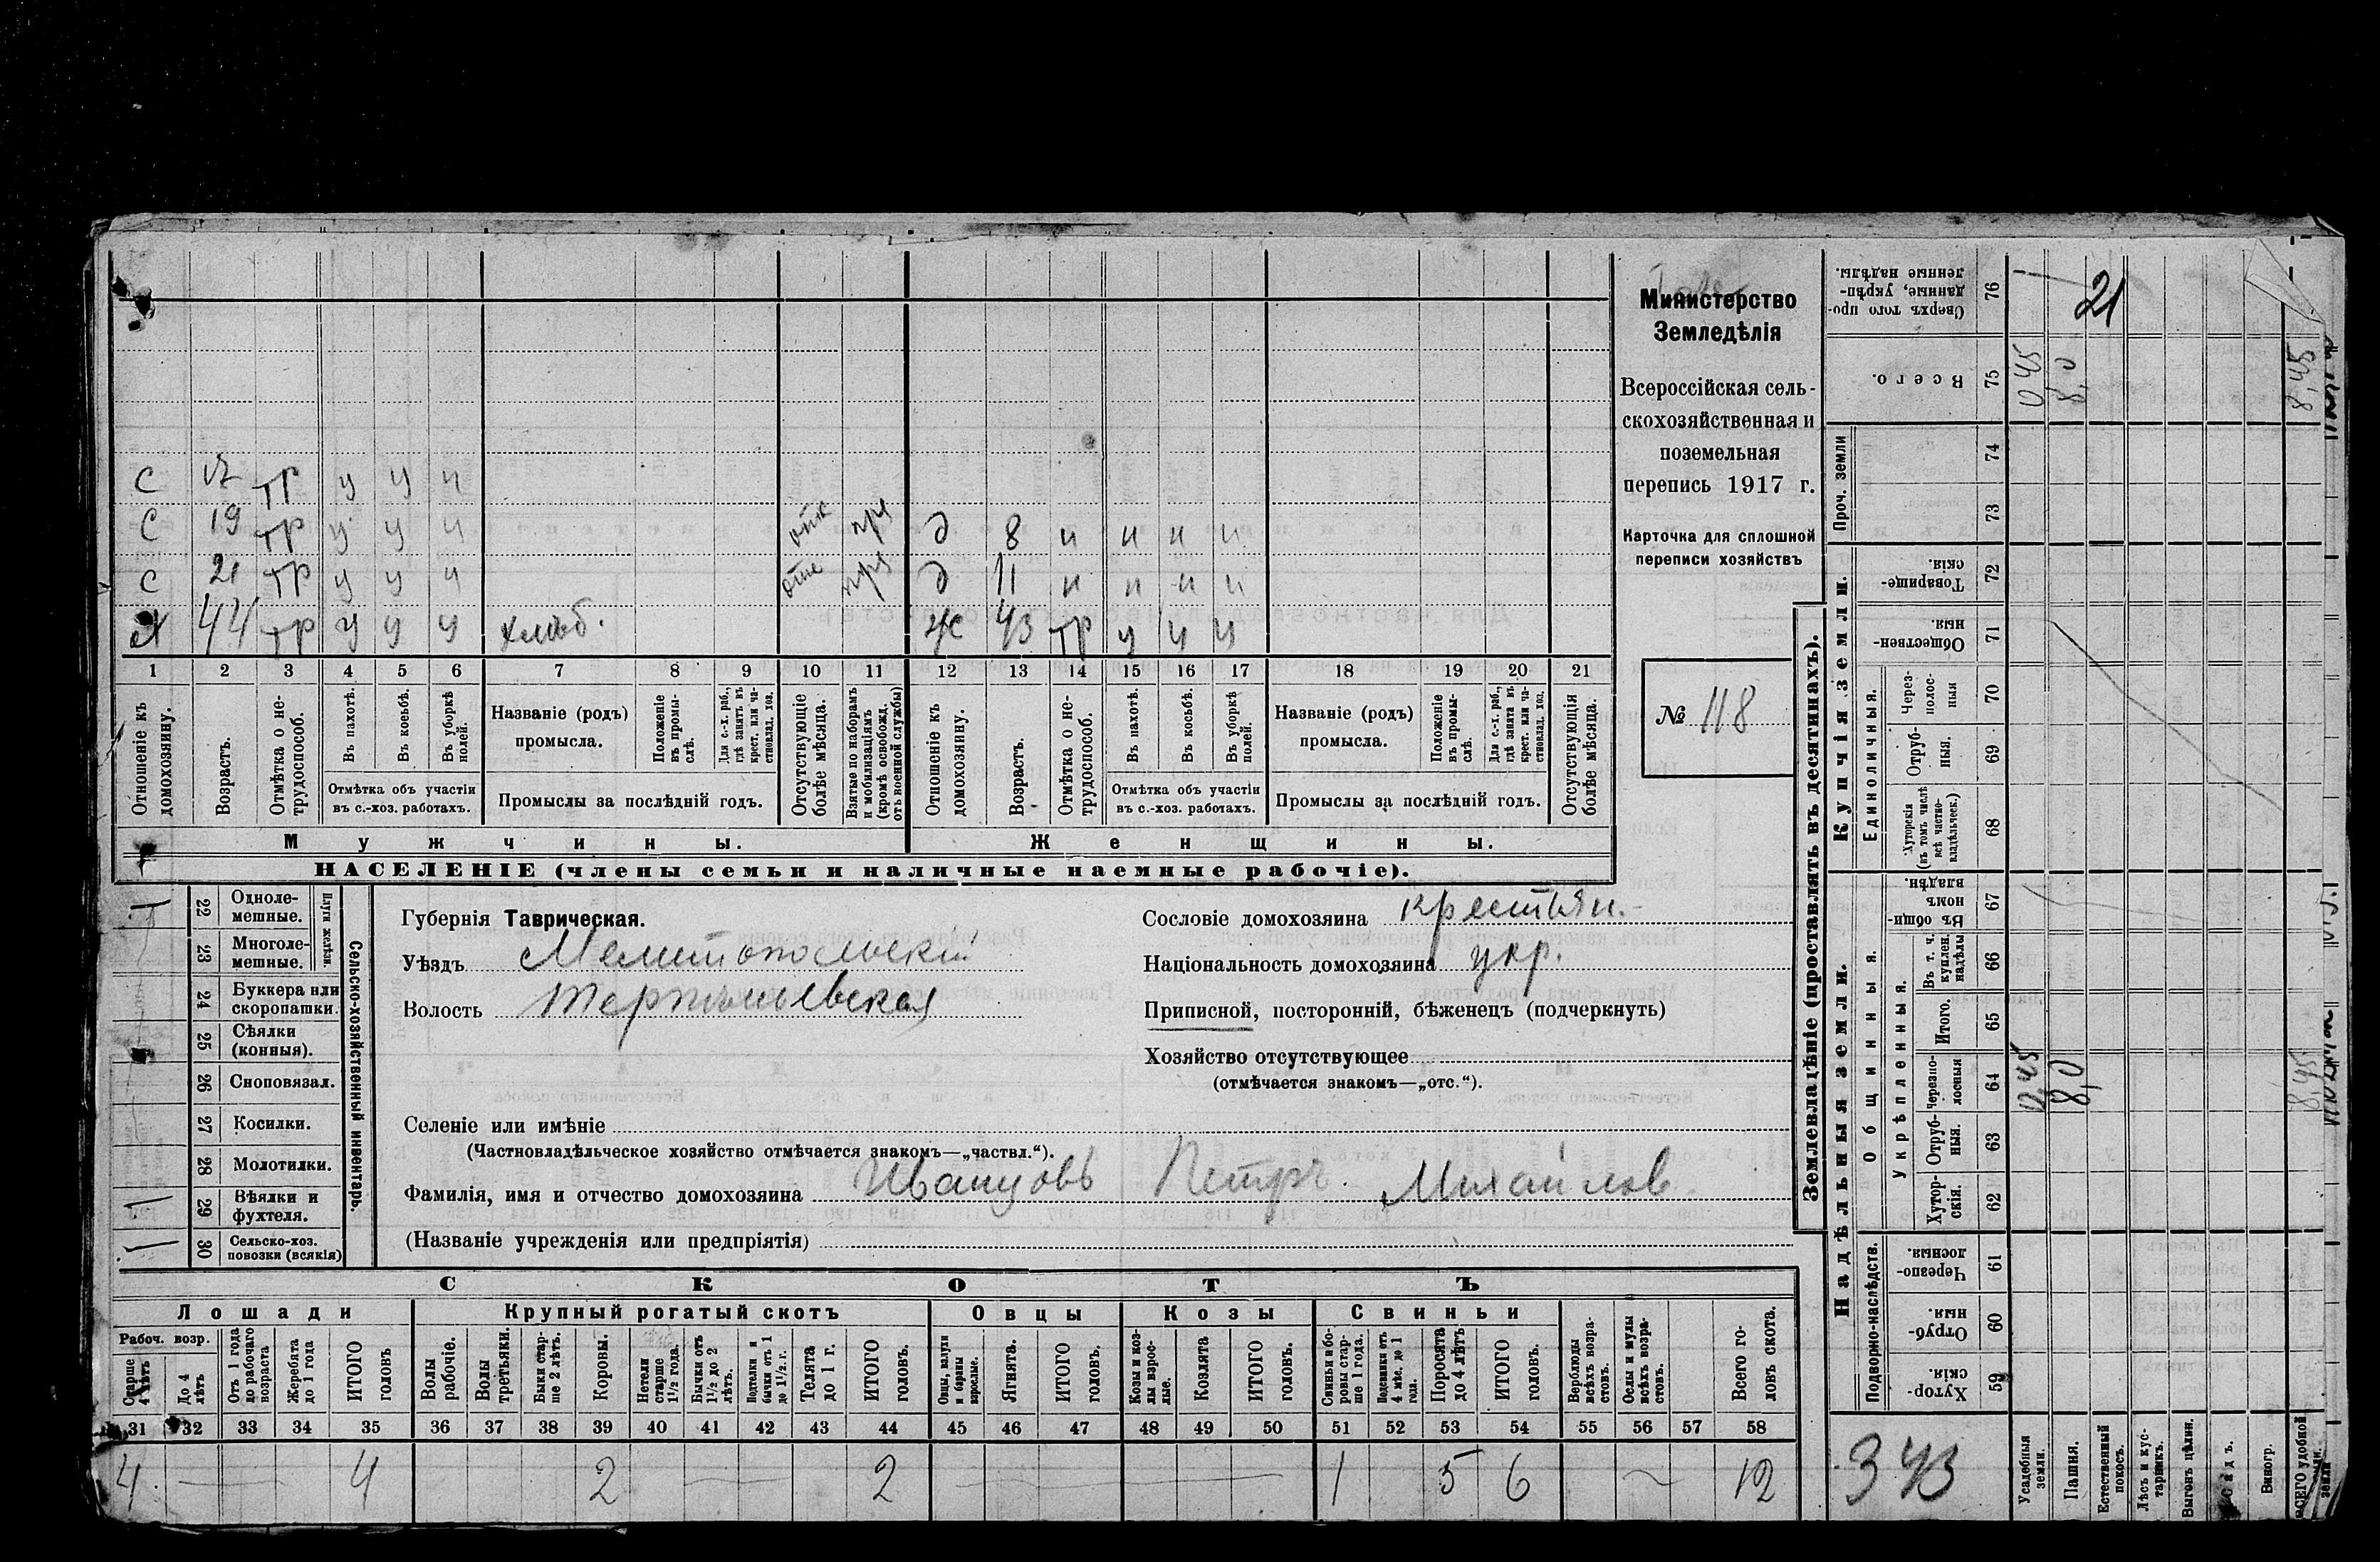 Министерство
Земледѣлія
Всероссійская сель-
скохозяйственная и
поземельная
перепись 1917 г.
Карточка для сплошной
переписи хозяйствъ
№ 118
С 17 тр у у н
С 19 тр у у н отс
д 8 н н н н
С 21 тр у у н отс
д 11 н н н н
Х 44 тр у у у хлѣб.
ж 43 тр у у у
1 2 3 4 5 6 7 8 9 10 11 12 13 14 15 16 17 18 19 20 21
Отношеніе къ домохозяину.
Возрастъ.
Отмѣтка о не-трудоспособ.
Въ пахотѣ.
Въ косьбѣ.
Въ уборкѣ полей.
Отмѣтка объ участіи
въ с.-хоз. работахъ.
Названіе (родъ)
промысла.
Положеніе въ промы-слѣ.
Для с.-х. раб., гдѣ занятъ въ крест. или ча-стновлад. хоз.
Промыслы за послѣдній годъ.
Отсутствующіе болѣе мѣсяца.
Взятые по наборамъ и мобилизаціямъ (кромѣ освобожд. отъ военной службы)
Отношеніе къ домохозяину.
Возрастъ.
Отмѣтка о не-трудоспособ.
Въ пахотѣ.
Въ косьбѣ.
Въ уборкѣ полей.
Отмѣтка объ участіи
въ с.-хоз. работахъ.
Названіе (родъ)
промысла.
Положеніе въ промы-слѣ.
Для с.-х. раб., гдѣ занята въ крест. или ча-стновлад. хоз.
Промыслы за послѣдній годъ.
Отсутствующія болѣе мѣсяца.
Мужчины.
Женщины.
НАСЕЛЕНІЕ (члены семьи и наличные наемные рабочіе).
Сельско-хозяйственный инвентарь.
Плуги желѣзн.
22 Одноле-мешные. 1
23 Многоле-мешные.
24 Буккера или скоропашки.
25 Сѣялки (конныя).
26 Сноповязал.
27 Косилки.
28 Молотилки.
29 Вѣялки и фухтеля. 1
30 Сельско-хоз. повозки (всякія) 1
Губернія Таврическая.
Уѣздъ Мелитопольскій
Волость Терпѣньевская
Сословіе домохозяина крестьян.
Національность домохозяина укр.
Приписной, посторонній, бѣженец (подчеркнуть)
Хозяйство отсутствующее
(отмѣчается знакомъ—„отс.“).
Селеніе или имѣніе
(Частновладѣльческое хозяйство отмѣчается знакомъ—„частвл.“).
Фамилія, имя и отчество домохозяина Иванцовъ Петръ Михайлов
(Названіе учрежденія или предпріятія)
СКОТЪ
Лошади
Крупный рогатый скотъ
Овцы
Козы
Свиньи
Рабоч. возр.
Старше 4 лѣтъ
До 4 лѣтъ
Отъ 1 года до рабочаго возраста
Жеребята до 1 года
ИТОГО головъ
Волы рабочіе.
Волы третьяки.
Быки стар-ше 2 лѣтъ.
Коровы.
Нетели старше 1½ года.
Бычки отъ 1½ до 2 лѣтъ.
Подтелки и бычки отъ 1 до 1½ г.
Телята до 1 г.
ИТОГО головъ.
Овцы, валухи и бараны взрослые.
Ягнята.
ИТОГО головъ.
Козы и коз-лы взрос-лые.
Козлята
ИТОГО головъ.
Свиньи и бо-ровы стар-ше 1 года.
Подсвинки отъ 4 мѣс. до 1 года.
Поросята до 4 лѣтъ
ИТОГО головъ.
Верблюды всѣхъ возра-стовъ.
Ослы и мулы всѣхъ возра-стовъ.
Всего го-ловъ скота.
31 32 33 34 35 36 37 38 39 40 41 42 43 44 45 46 47 48 49 50 51 52 53 54 55 56 57 58
4 — 4 2 2 1 5 6 12
Землевладѣніе (проставлять въ десятинахъ).
Купчія земли.
Надѣльныя земли.
Сверхъ того про-данные, укрѣп-ленные надѣлы. 76 21
Всего. 75 0,45 8,0 8,45
Проч. земли 74
73
Товарище-скія. 72
Обществен-ныя. 71
Единоличныя.
Через-полос-ныя 70
Отруб-ныя. 69
Хуторскія (въ томъ числѣ всѣ частно-владѣльческ.) 68
Общинныя.
Въ общин-номъ владѣн. 67
Укрѣпленныя.
Въ т. ч. куплен. надѣлы 66
Итого. 65
Черезпо-лосныя 64 0,45 8,0 8,45
Отруб-ныя. 63
Хутор-скія. 62
Подворно-наслѣдств.
Черезпо-лосныя. 61
Отруб-ныя. 60
Хутор-скія. 59
343
Усадебныя земли.
Пашня.
Естественный покосъ.
Лѣсъ и кус-тарникъ.
Выгонъ цѣлин.
Садъ.
Виногр.
ВСЕГО удобной земли.